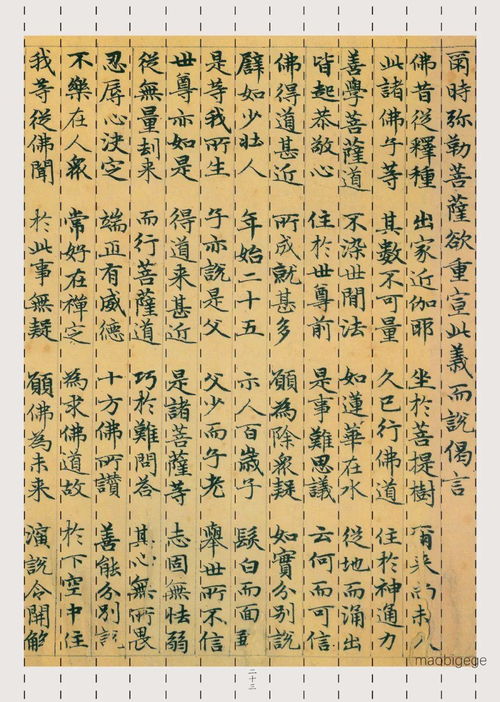 爾時弥勒菩薩欲重宣此義而說偈言
佛昔從釋種 出家近伽耶 坐於菩提樹 爾来尚未久
此諸佛子等 其數不可量 久已行佛道 住於神通力
善學菩薩道 不染世間法 如蓮華在水 從地而涌出
皆起恭敬心 住於世尊前 是事難思議 云何而可信
佛得道甚近 所成就甚多 願為除衆疑 如實分別說
譬如少壯人 年始二十五 示人百歲子 髮白而面
是等我所生 子亦說是父 父少而子老 舉世所不信
世尊亦如是 得道来甚近 是諸菩薩等 志固無怯弱
從無量劫来 而行菩薩道 巧於難問答 其心無所畏
忍辱心決定 端正有威德 十方佛所讚 善能分別說
不樂在人衆 常好在禪定 為求佛道故 於下空中住
我等從佛聞 於此事無疑 願佛為未来 演說令開解
二十三
maobigege